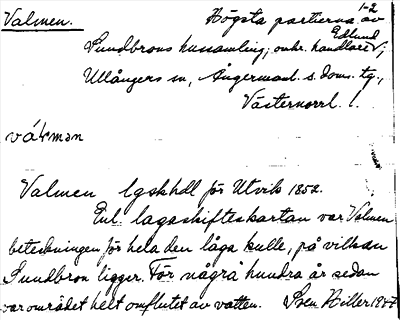 Valmen.
1-2
Högsta partierna av
Sundbrons hussamling, omkr. handlare Edlund;
Ullångers sn, Ångermanl. s. doms. tg.,
Västernorrl. l.
Valmen lgskhdl för Utvik 1852.
Enl. lagaskifteskartan var Valmen
beteckningen för hela den låga kulle, på vilken
Sundbron ligger. För några hundra år sedan
var området helt omflutet av vatten. Sven Hiller